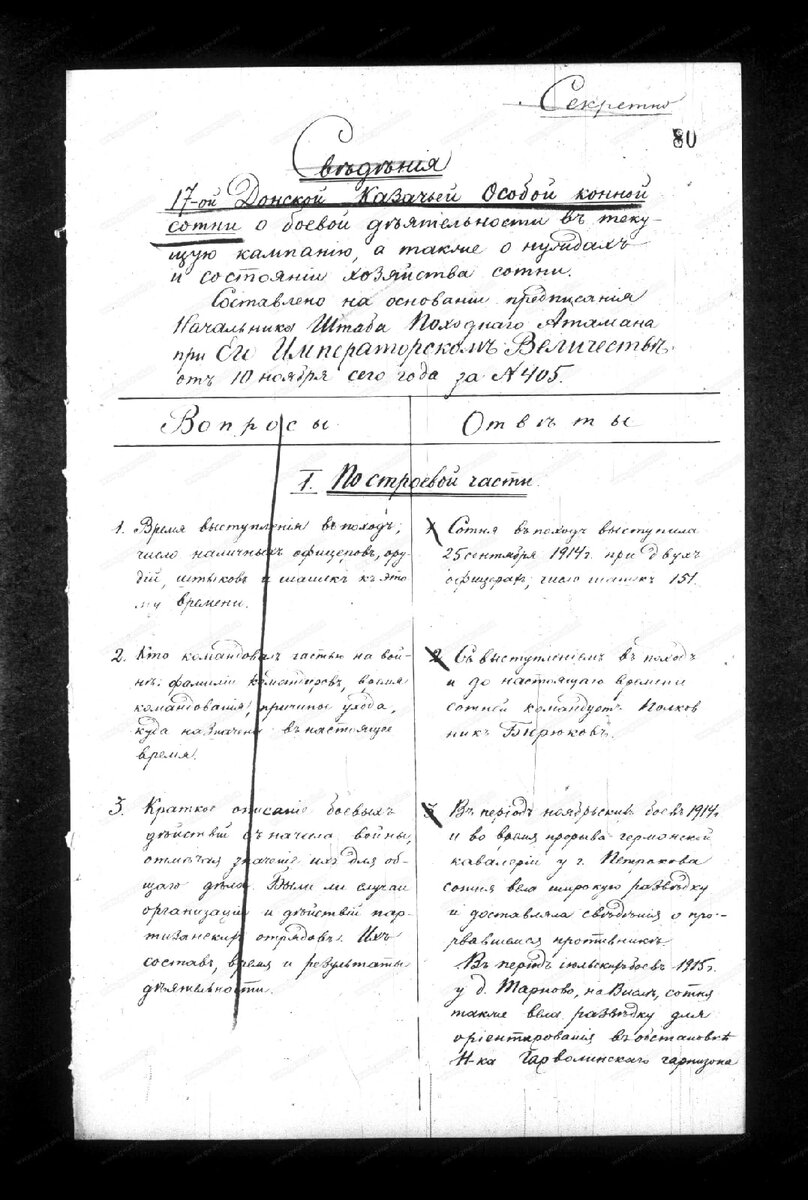 Секретно
80
Свѣдѣнія
17-ой Донской Казачьей Особой конной
сотни о боевой дѣятельности въ теку-
щую кампанію, а также о нуждахъ
и состояніи хозяйства сотни.
Составлено на основаніи предписанія
Начальника Штаба Походнаго Атамана
при Его Императорскомъ Величествѣ
отъ 10 ноября сего года за № 405.
Вопросы
Отвѣты
I. По строевой части.
1. Время выступленія въ походъ,
число наличныхъ офицеровъ, ору-
дій, штыковъ и шашекъ къ это
му времени.
1 Сотня въ походъ выступила
25 сентября 1914 г. при двухъ
офицерахъ, число шашекъ 151.
2. Кто командовалъ частью на вой-
нѣ: фамиліи командировъ, время
командованія, причины ухода,
куда назначены въ настоящее
время.
2 Съ выступленіемъ въ походъ
и до настоящаго времени
сотней командуетъ Полков
никъ Бирюковъ.
3. Краткое описаніе боевыхъ
дѣйствій съ начала войны,
отмѣчая значеніе ихъ для об-
щаго дѣла. Были ли случаи
организаціи и дѣйствій пар-
тизанскихъ отрядовъ. Ихъ
составъ, время и результаты
дѣятельности.
3 Въ періодъ ноябрьскихъ боевъ 1914 г
и во время прорыва германской
кавалеріи у г. Петрокова
сотня вела широкую развѣдку
и доставляла свѣдѣнія о про-
рвавшемся противникѣ
Въ періодъ іюльскихъ боевъ 1915 г.
у д. Тарново, на Вислѣ, сотня
также вела развѣдку для
оріентированія въ обстановкѣ
Н-ка Гарволинскаго гарнизона